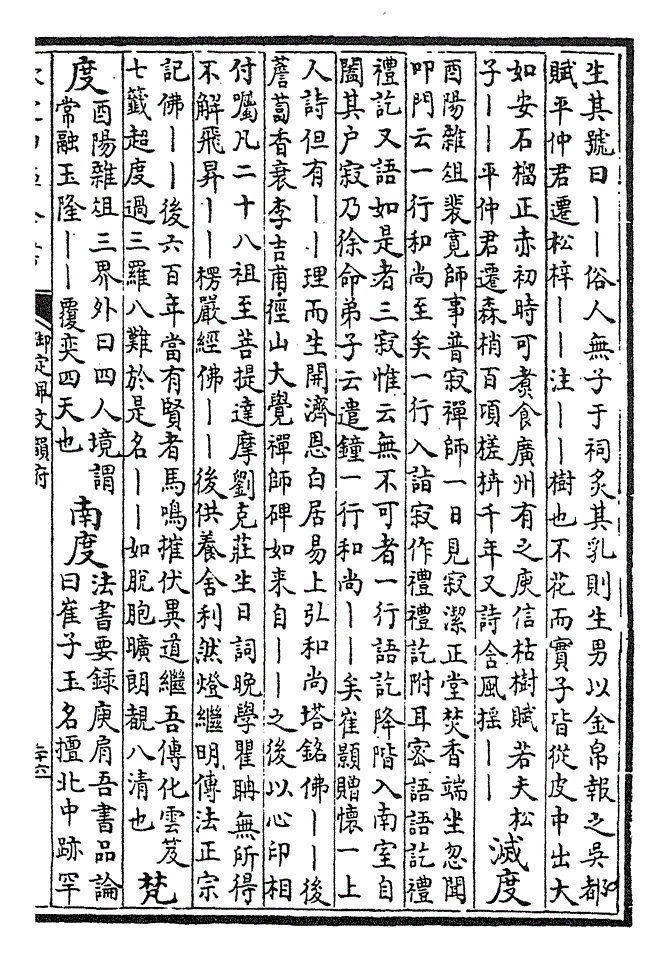 生其號曰丨丨俗人無子于祠炙其乳則生男以金帛報之吳都
賦平仲君遷松梓丨丨注丨丨樹也不花而實子皆從皮中出大
如安石榴正赤初時可煮食廣州有之庾信枯樹賦若夫松
子丨丨平仲君遷森梢百頃槎枿千年又詩含風搖丨丨
滅度
酉陽雜俎裴寬師事普寂禪師一日見寂潔正堂焚香端坐忽聞
叩門云一行和尚至矣一行入詣寂作禮禮訖附耳密語語訖禮
禮訖又語如是者三寂惟云無不可者一行語訖降階入南室自
闔其户寂乃徐命弟子云遣鐘一行和尚丨丨矣崔顥贈懷一上
人詩但有丨丨理而生開濟恩白居易上弘和尚塔銘佛丨丨後
薝蔔香衰李吉甫徑山大覺禪師碑如来自丨丨之後以心印相
付囑凡二十八祖至菩提達摩劉克莊生日詞晚學瞿聃無所得
不解飛昇丨丨楞嚴經佛丨丨後供養舍利然燈繼明傳法正宗
記佛丨丨後六百年當有賢者馬鳴摧伏異道繼吾傳化雲笈
七籤超度過三羅八難於是名丨丨如脫胞曠朗覩八清也
梵
度
酉陽雜俎三界外曰四人境謂
常融玉隆丨丨覆奕四天也
南度
法書要錄庾肩吾書品論
曰崔子玉名擅北中跡罕
御定佩文韻府